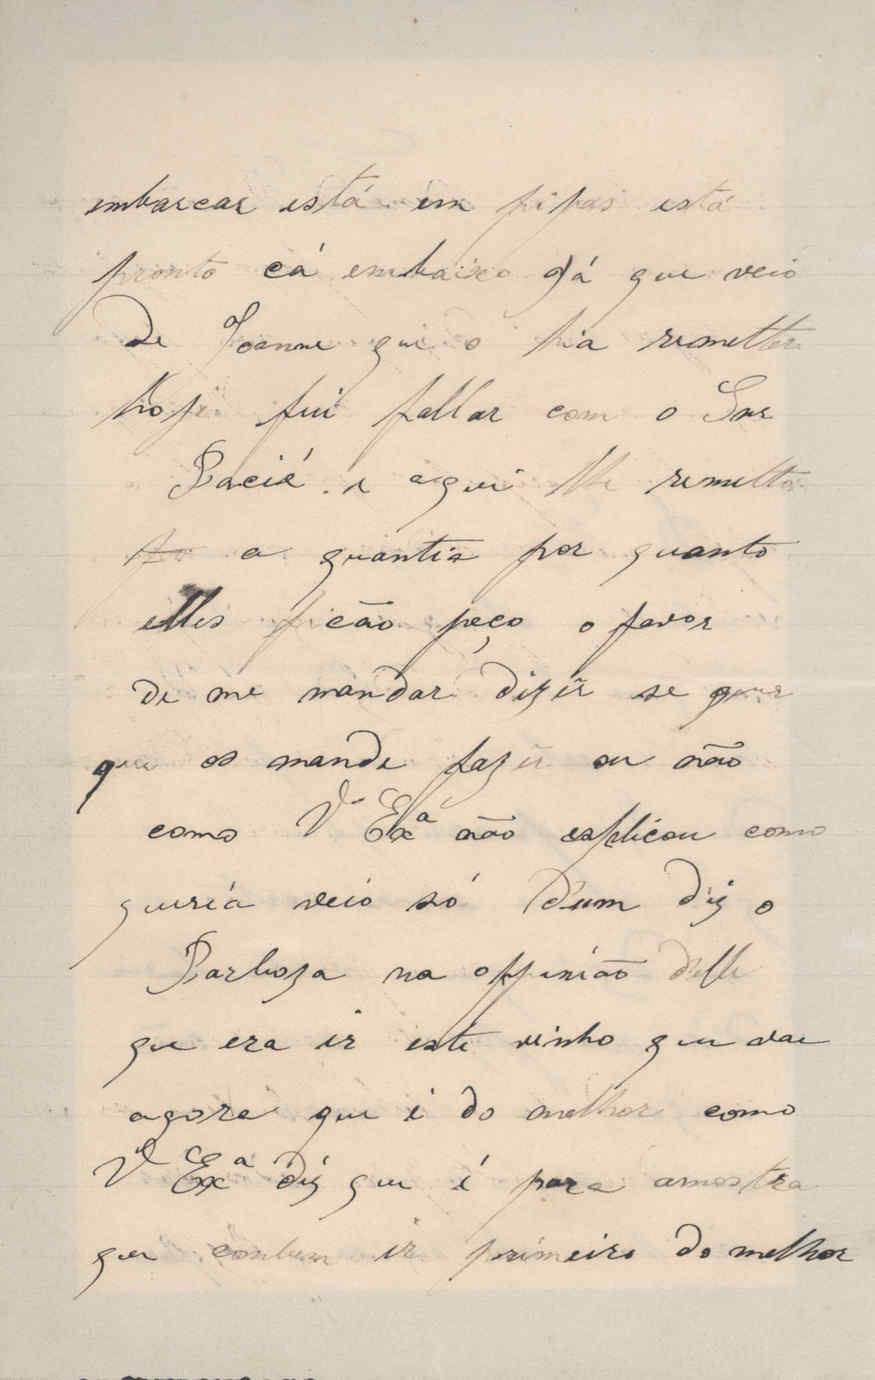 embarcar está em pipas está
pronto cá embaixo já que veio
de Joanne que o hia remetter
hoje fui fallar com o Snr
e aqui lhe remetto
a quantia por quanto
elles ficão peço o favor
de me mandar dizer se quer
que os mande fazer ou não
como Vª Exª não esplicou como
queria veio só d'um diz o
Barboza na oppenião d'elle
que era ir este vinho que vae
agora que é do melhor como
Vª Exª diz que é para amostra
que combem ir primeiro do melhor